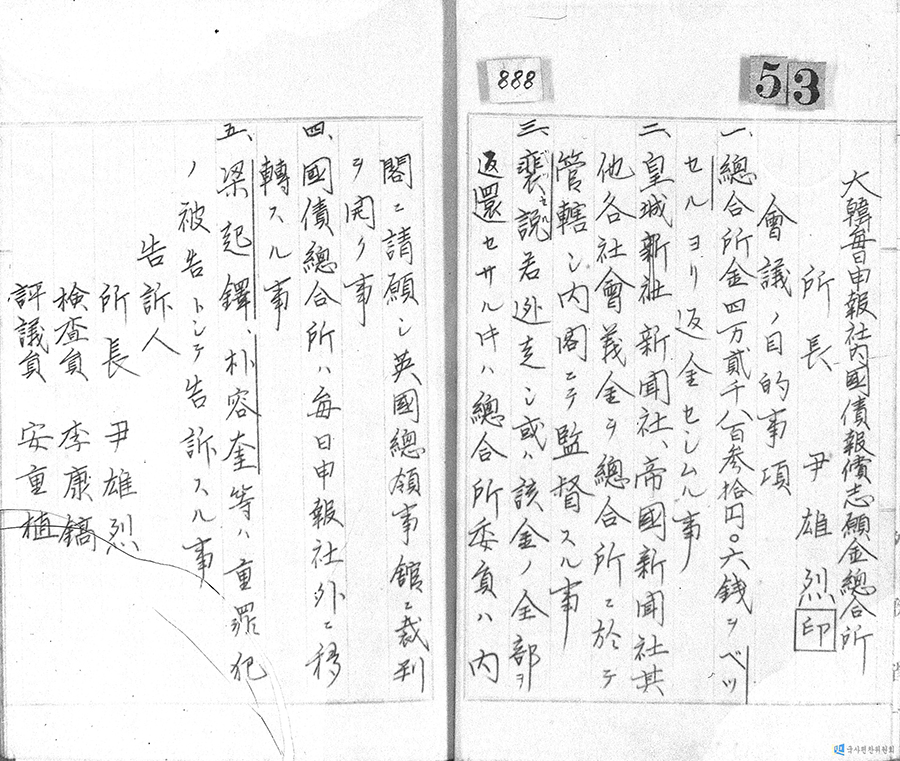 888
53
大韓每日申報社內國債報償志願金總合所
所長 尹雄烈 印
會議ノ目的事項
一、總合所金四万貳千八百参拾円〇六錢ヲベッ
セルヨリ返金セシムル事
二、皇城新社新聞社、帝國新聞社其
他各社會義金ヲ總合所ニ於テ
管轄シ內閣ニテ監督スル事
三、裴說君逃走シ或ハ該金ノ全部ヲ
返還セサルトキハ總合所委員ハ內
閣ニ請願シ英國總領事館ニ裁判
ヲ開ク事
四、國債總合所ハ每日申報社外ニ移
轉スル事
五、梁起鐸、朴容奎等ハ重罪犯
ノ被告トシテ告訴スル事
告訴人
所長 尹雄烈
検査員 李康鎬
評議員 安重植
국사편찬위원회